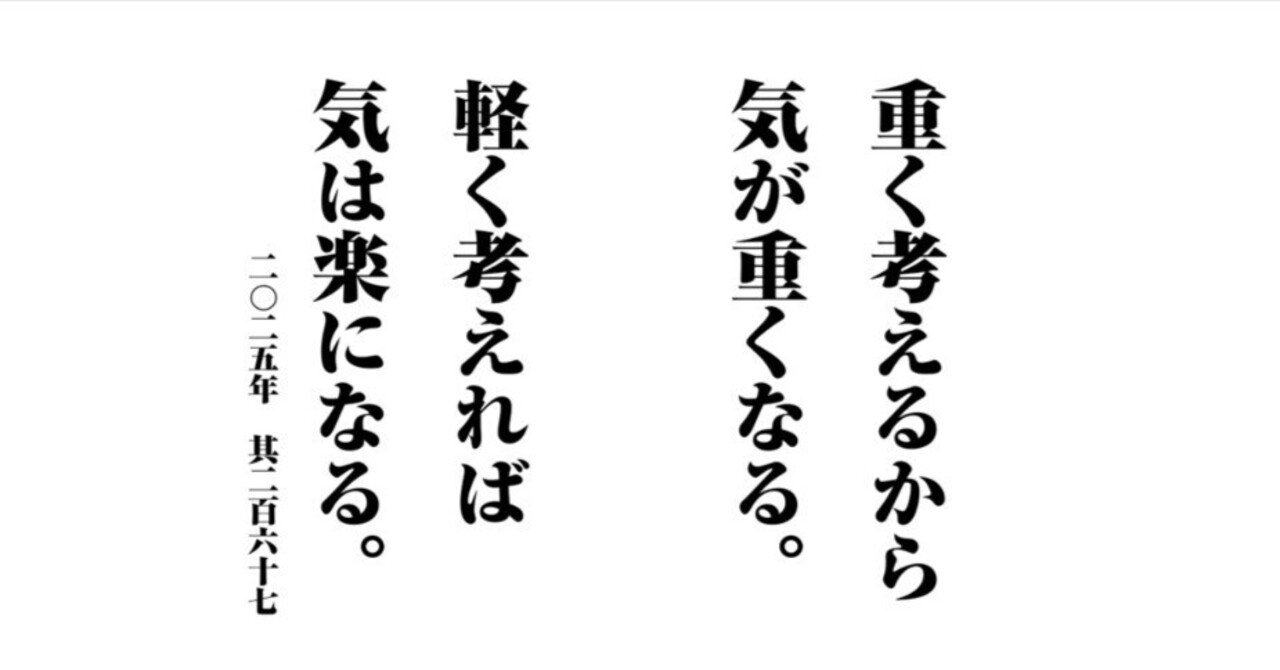 重く考えるから
気が重くなる。
軽く考えれば
気は楽になる。
二〇二五年　其二百六十七